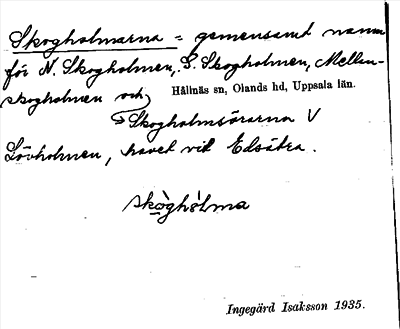 Skogholmarna = gemensamt namn
för N. Skogholmen, S. Skogholmen, Mellan-
skogholmen och
Hållnäs sn, Olands hd, Uppsala län.
Skogholmsörarna V
Lövholmen, havet vid Edsätra.
skòghòlma
Ingegärd Isaksson 1935.